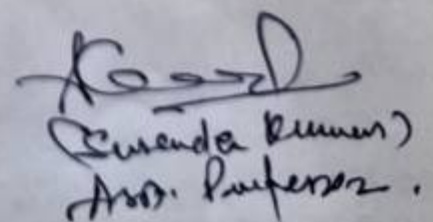 (Surender Kumar)
Asso. Professor.